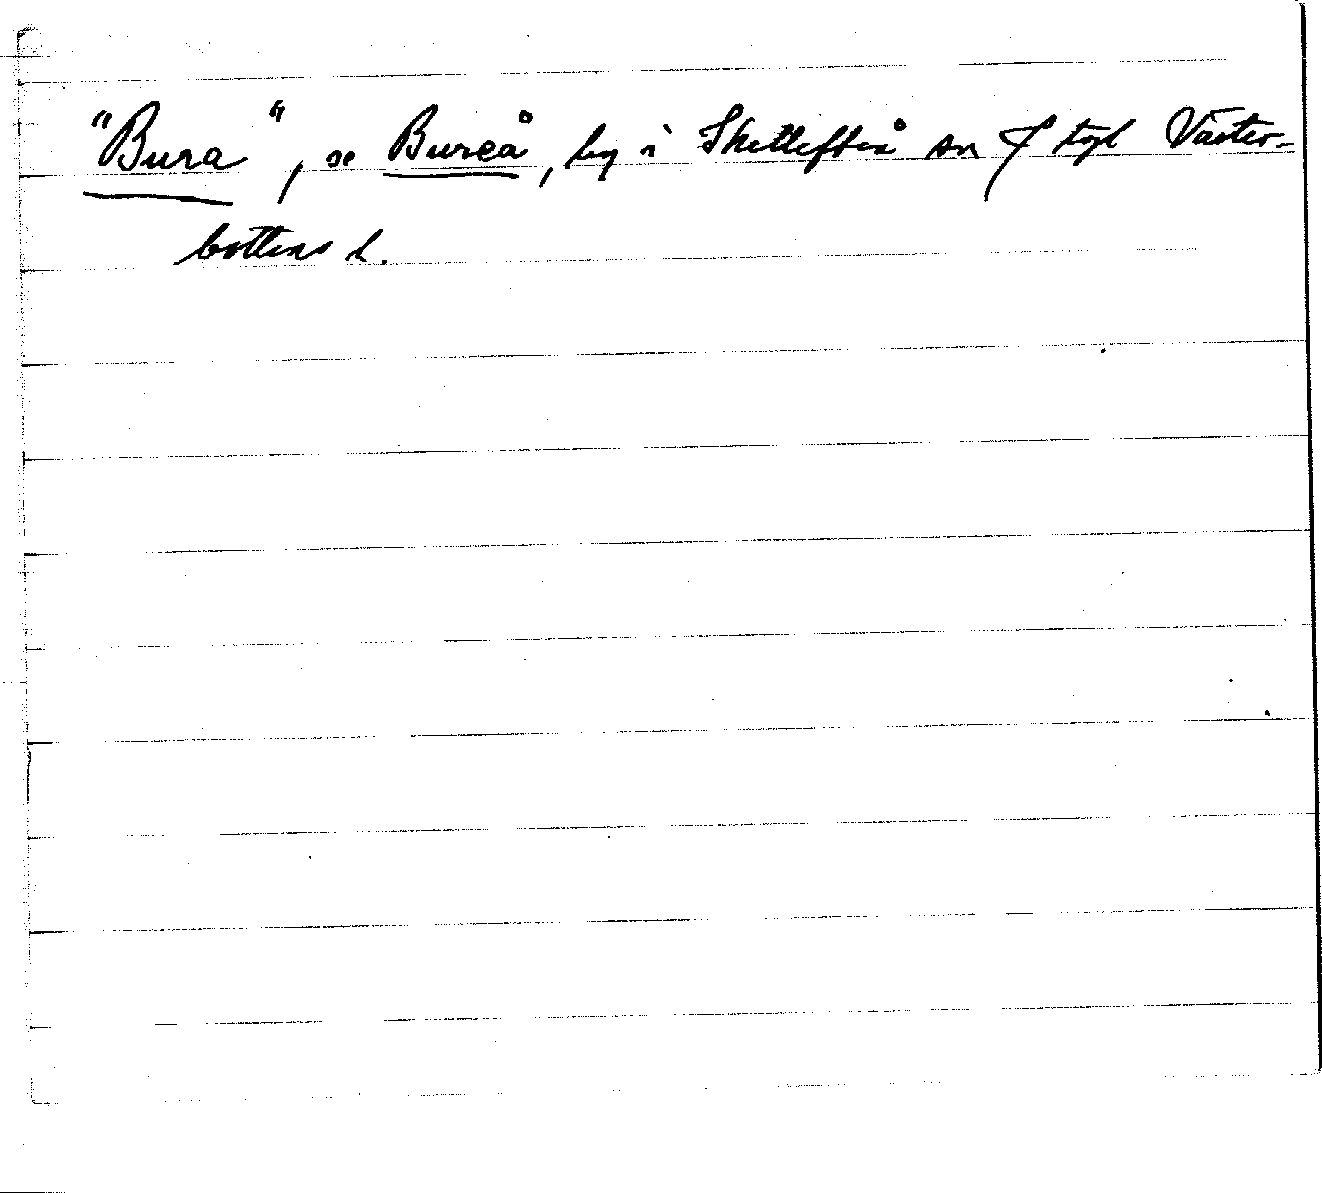 "Bura", se Bureå, by i Skellefteå sn f tgl Väster-
bottens l.